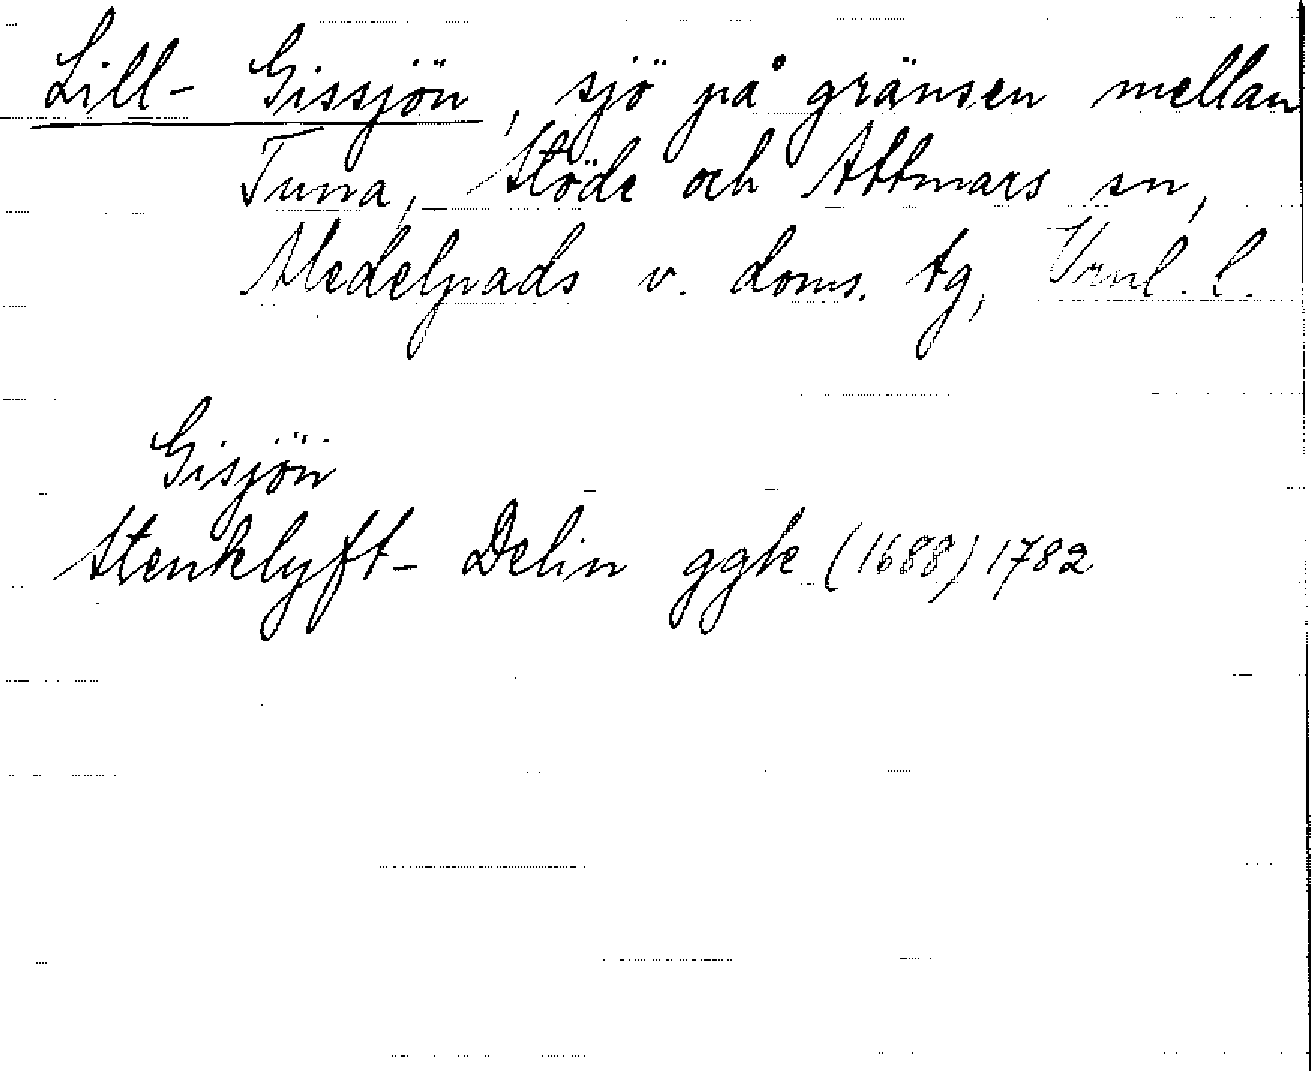 Lill- Gissjön, sjö på gränsen mellan
Tuna, Stöde och Attmars sn,
Medelpads v. doms. tg, Vrnl. l.
Gisjön
Stenklyft- Delin ggk (1688) 1782